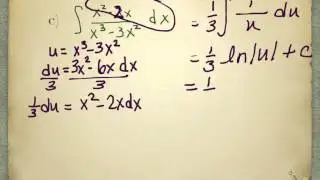 c) ∫ x² - 2x / x³ - 3x² dx
u = x³ - 3x²
du/3 = 3x² - 6x dx/3
1/3 du = x² - 2x dx
= 1/3 ∫ 1/u du
= 1/3 ln|u| + c
= 1